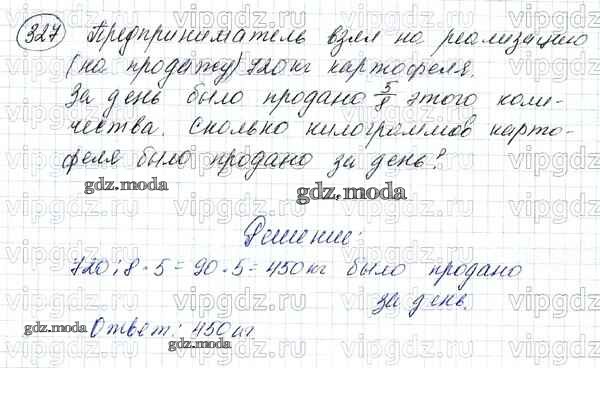 327 Предприниматель взял на реализацию
(на продажу) 720 кг картофеля.
За день было продано 5/8 этого коли-
чества. Сколько килограммов карто-
феля было продано за день?
gdz.moda
gdz.moda
Решение:
720:8·5=90·5=450 кг было продано
за день.
gdz.moda
Ответ: 450 кг
gdz.moda
vipgdz.ru